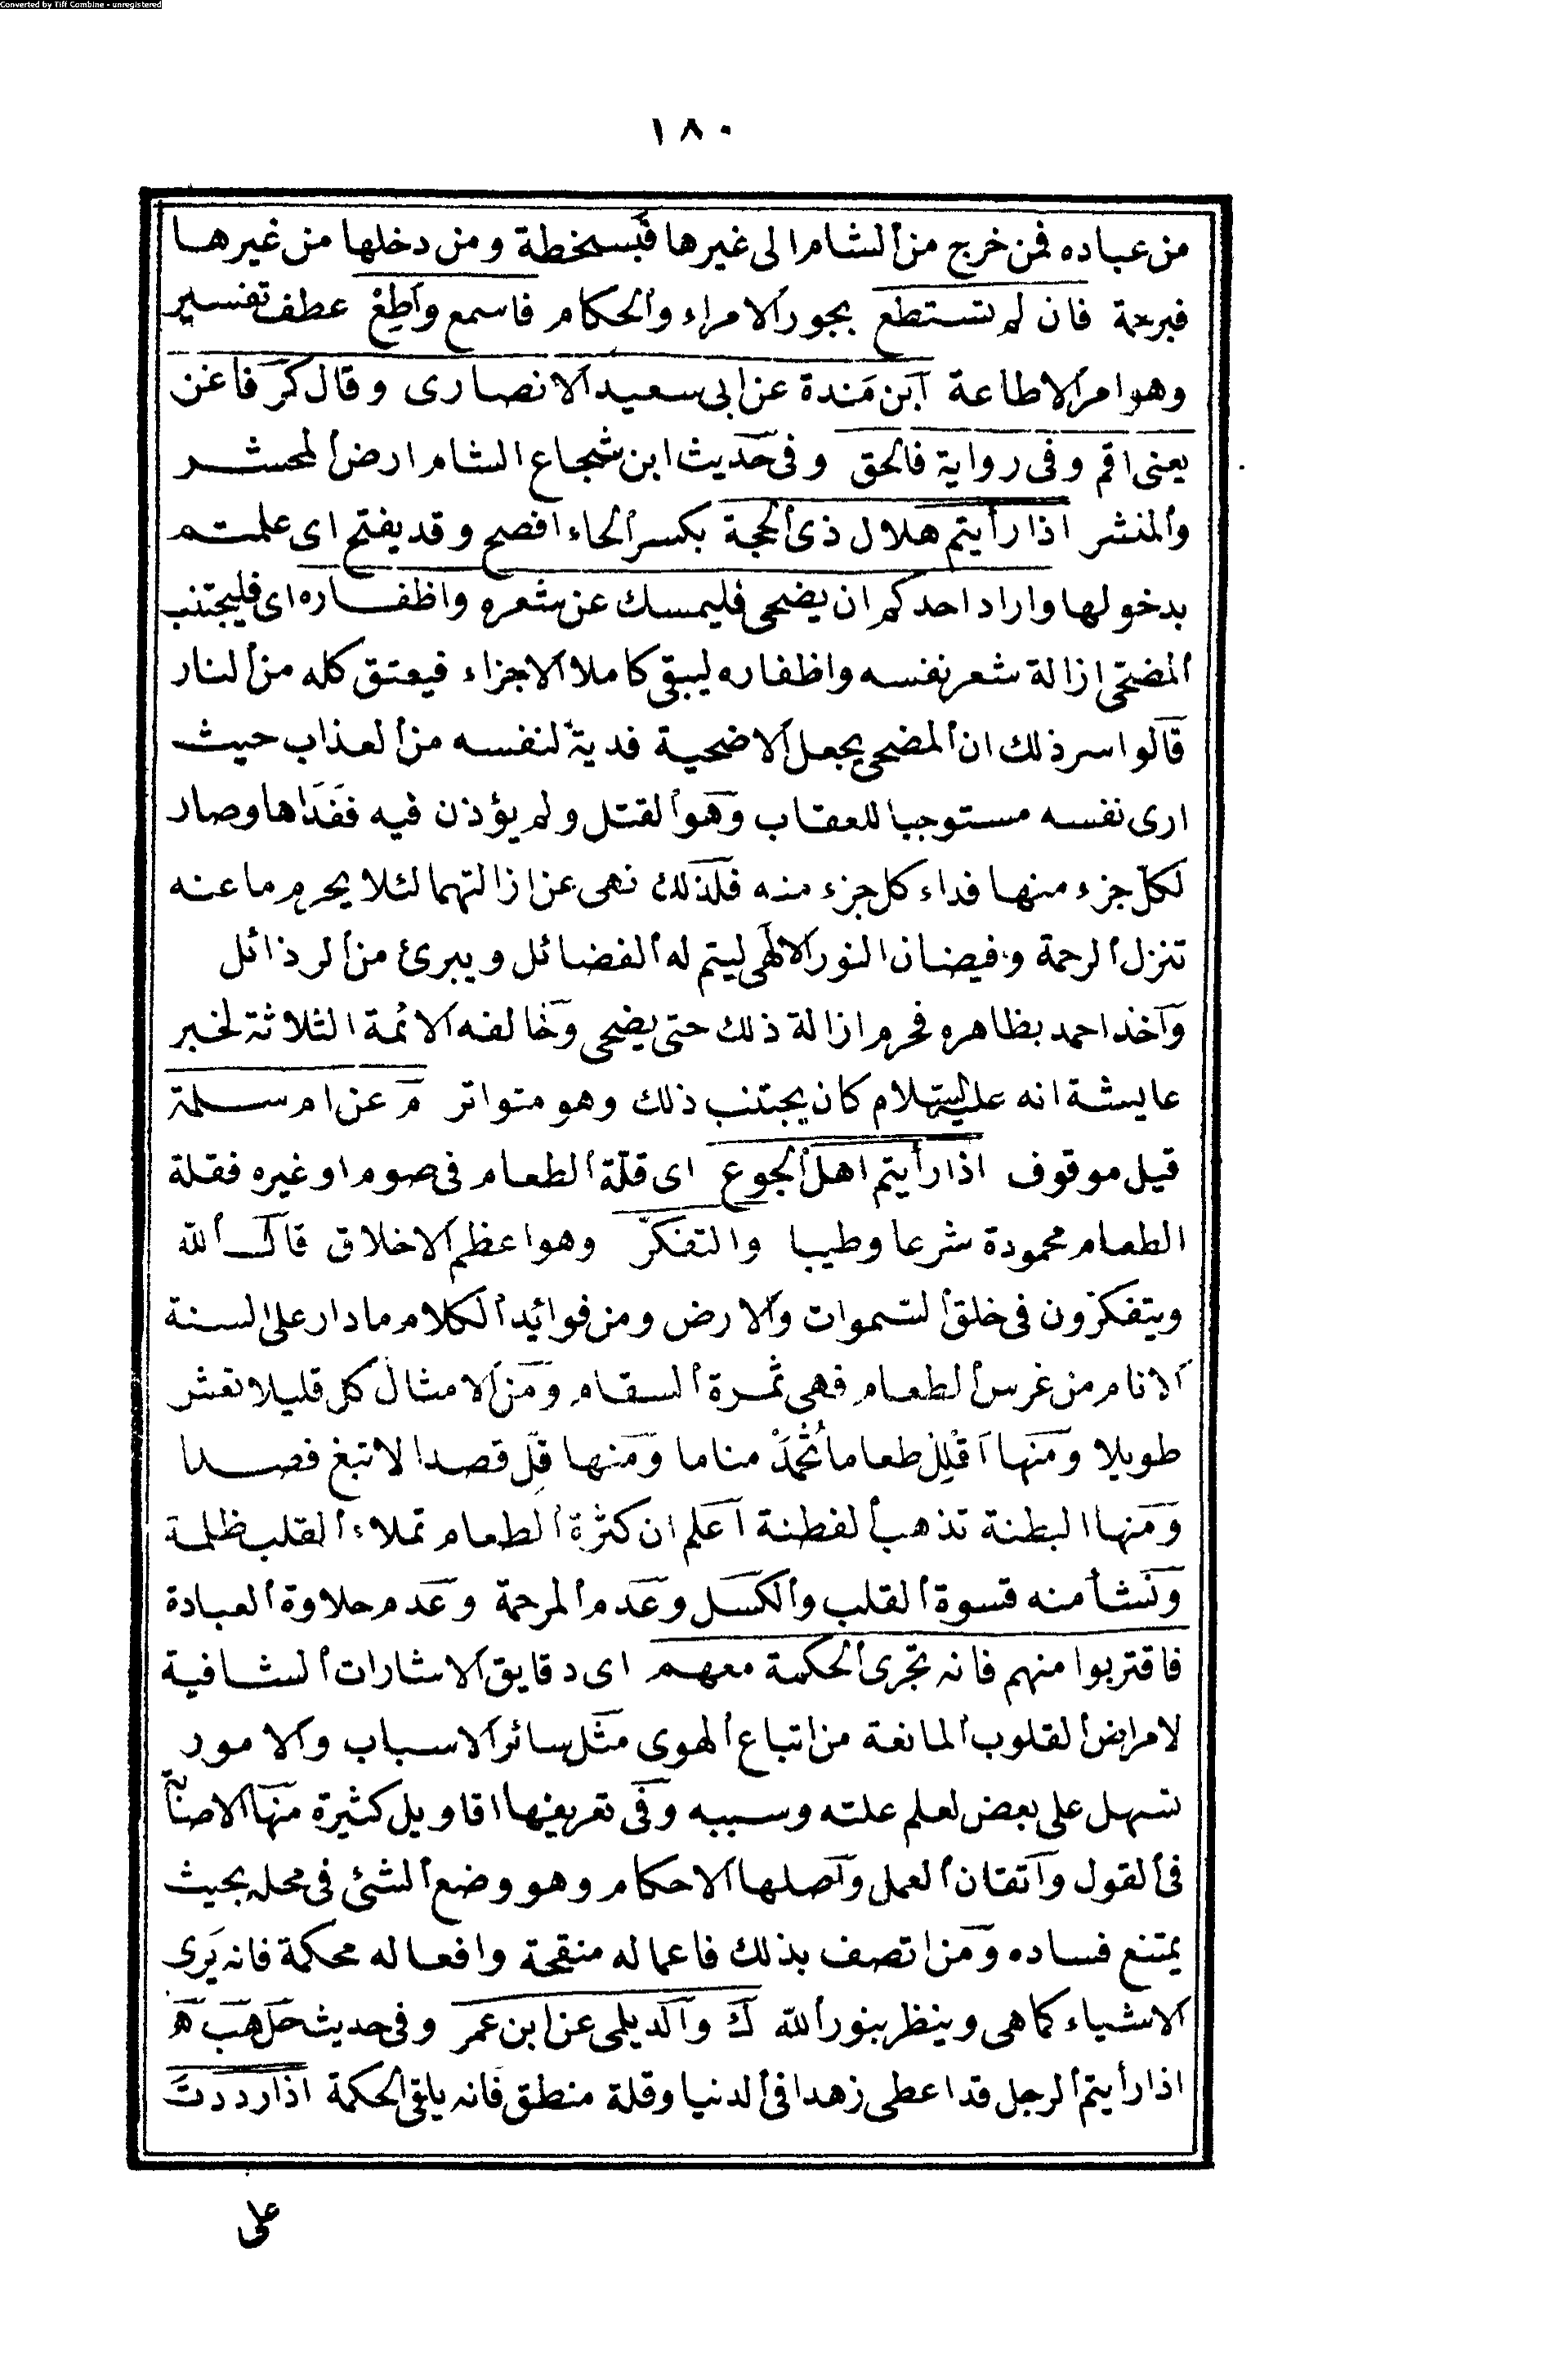 Converted by Tiff Combine - unregistered
١٨٠
من عباده فمن خرج من الشام الى غيرها فبسخطة ومن دخلها من غيرها
فبرحمة فان لم تستطع بجور الامراء والحكام فاسمع واطِعْ عطف تفسير
وهو امر الاطاعة ابن مَندة عن ابى سعيد الانصارى وقال كر فاغن
يعنى اقم وفى رواية فالحق وفى حديث ابن شجاع الشام ارض المحشر
والمنشر اذا رأيتم هلال ذى الحجة بكسر الحاء افصح وقد يفتح اى علمتم
بدخولها واراد احدكم ان يضحى فليمسك عن شعره واظفاره اى فليجتنب
المضحّى ازالة شعر نفسه واظفاره ليبقى كاملا الاجزاء فيعتق كله من النار
قالوا سر ذلك ان المضحى يجعل الاضحية فدية لنفسه من العذاب حيث
ارى نفسه مستوجبا للعقاب وهو القتل ولم يؤذن فيه ففَدَاها وصار
لكلّ جزء منها فداء كل جزء منه فلذلك نهى عن ازالتهما لئلا يحرم ما عنه
تنزل الرحمة وفيضان النور الالهى ليتم له الفضائل ويبرئ من الرذائل
واخذ احمد بظاهره فحرم ازالة ذلك حتى يضحى وخالفه الائمة الثلاثة لخبر
عايشة انه عليه السلام كان يجتنب ذلك وهو متواتر م عن ام سلمة
قيل موقوف اذا رأيتم اهل الجوع اى قلّة الطعام فى صوم او غيره فقلة
الطعام محمودة شرعا وطيبا والتفكّر وهو اعظم الاخلاق قال الله
ويتفكرّون فى خلق السّموات والارض ومن فوائد الكلام ما دار على السنة
الانام من غرس الطعام فهى ثمرة السقام ومن الامثال كل قليلا تعش
طويلا ومنها اَقْلِلْ طعاما تُحْمَدْ مناما ومنها قِل قصدا لا تبغ فصدا
ومنها البطنة تذهب الفطنة اعلم ان كثرة الطعام تملاء القلب ظلمة
ونشأ منه قسوة القلب والكسل وعدم المرحمة وعدم حلاوة العبادة
فاقتربوا منهم فانه تجرى الحكمة معهم اى دقايق الاشارات الشافية
لامراض القلوب المانعة من اتباع الهوى مثل سائر الاسباب والامور
سهل على بعض لعلم علته وسببه وفى تعريفها اقاويل كثيرة منها الاصابة
فى القول واتقان العمل واصلها الاحكام وهو وضع الشئ فى محله بحيث
يمتنع فساده ومن اتصف بذلك فاعماله منقحة وافعاله محكمة فانه يَرى
الاشياء كما هى وينظر بنور الله ك والديلمى عن ابن عمر وفى حديث حل هب ه
اذا رأيتم الرجل قد اعطى زهدا فى الدنيا وقلة منطق فانه يلقى الحكمة اذا رددت
على